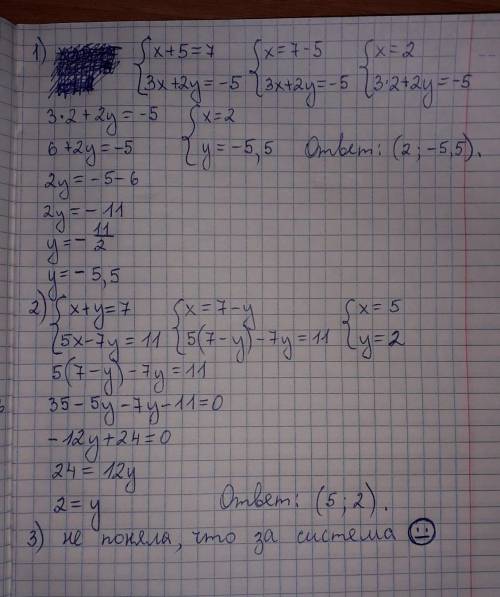 1) { x+5=7 { x=7-5 { x=2
3x+2y=-5 3x+2y=-5 3·2+2y=-5
3·2+2y=-5 { x=2
6+2y=-5 y=-5,5 Ответ: (2; -5,5).
2y=-5-6
2y=-11
y=-11/2
y=-5,5
2) { x+y=7 { x=7-y { x=5
5x-7y=11 5(7-y)-7y=11 y=2
5(7-y)-7y=11
35-5y-7y-11=0
-12y+24=0
24=12y
2=y Ответ: (5; 2).
3) не поняла, что за система